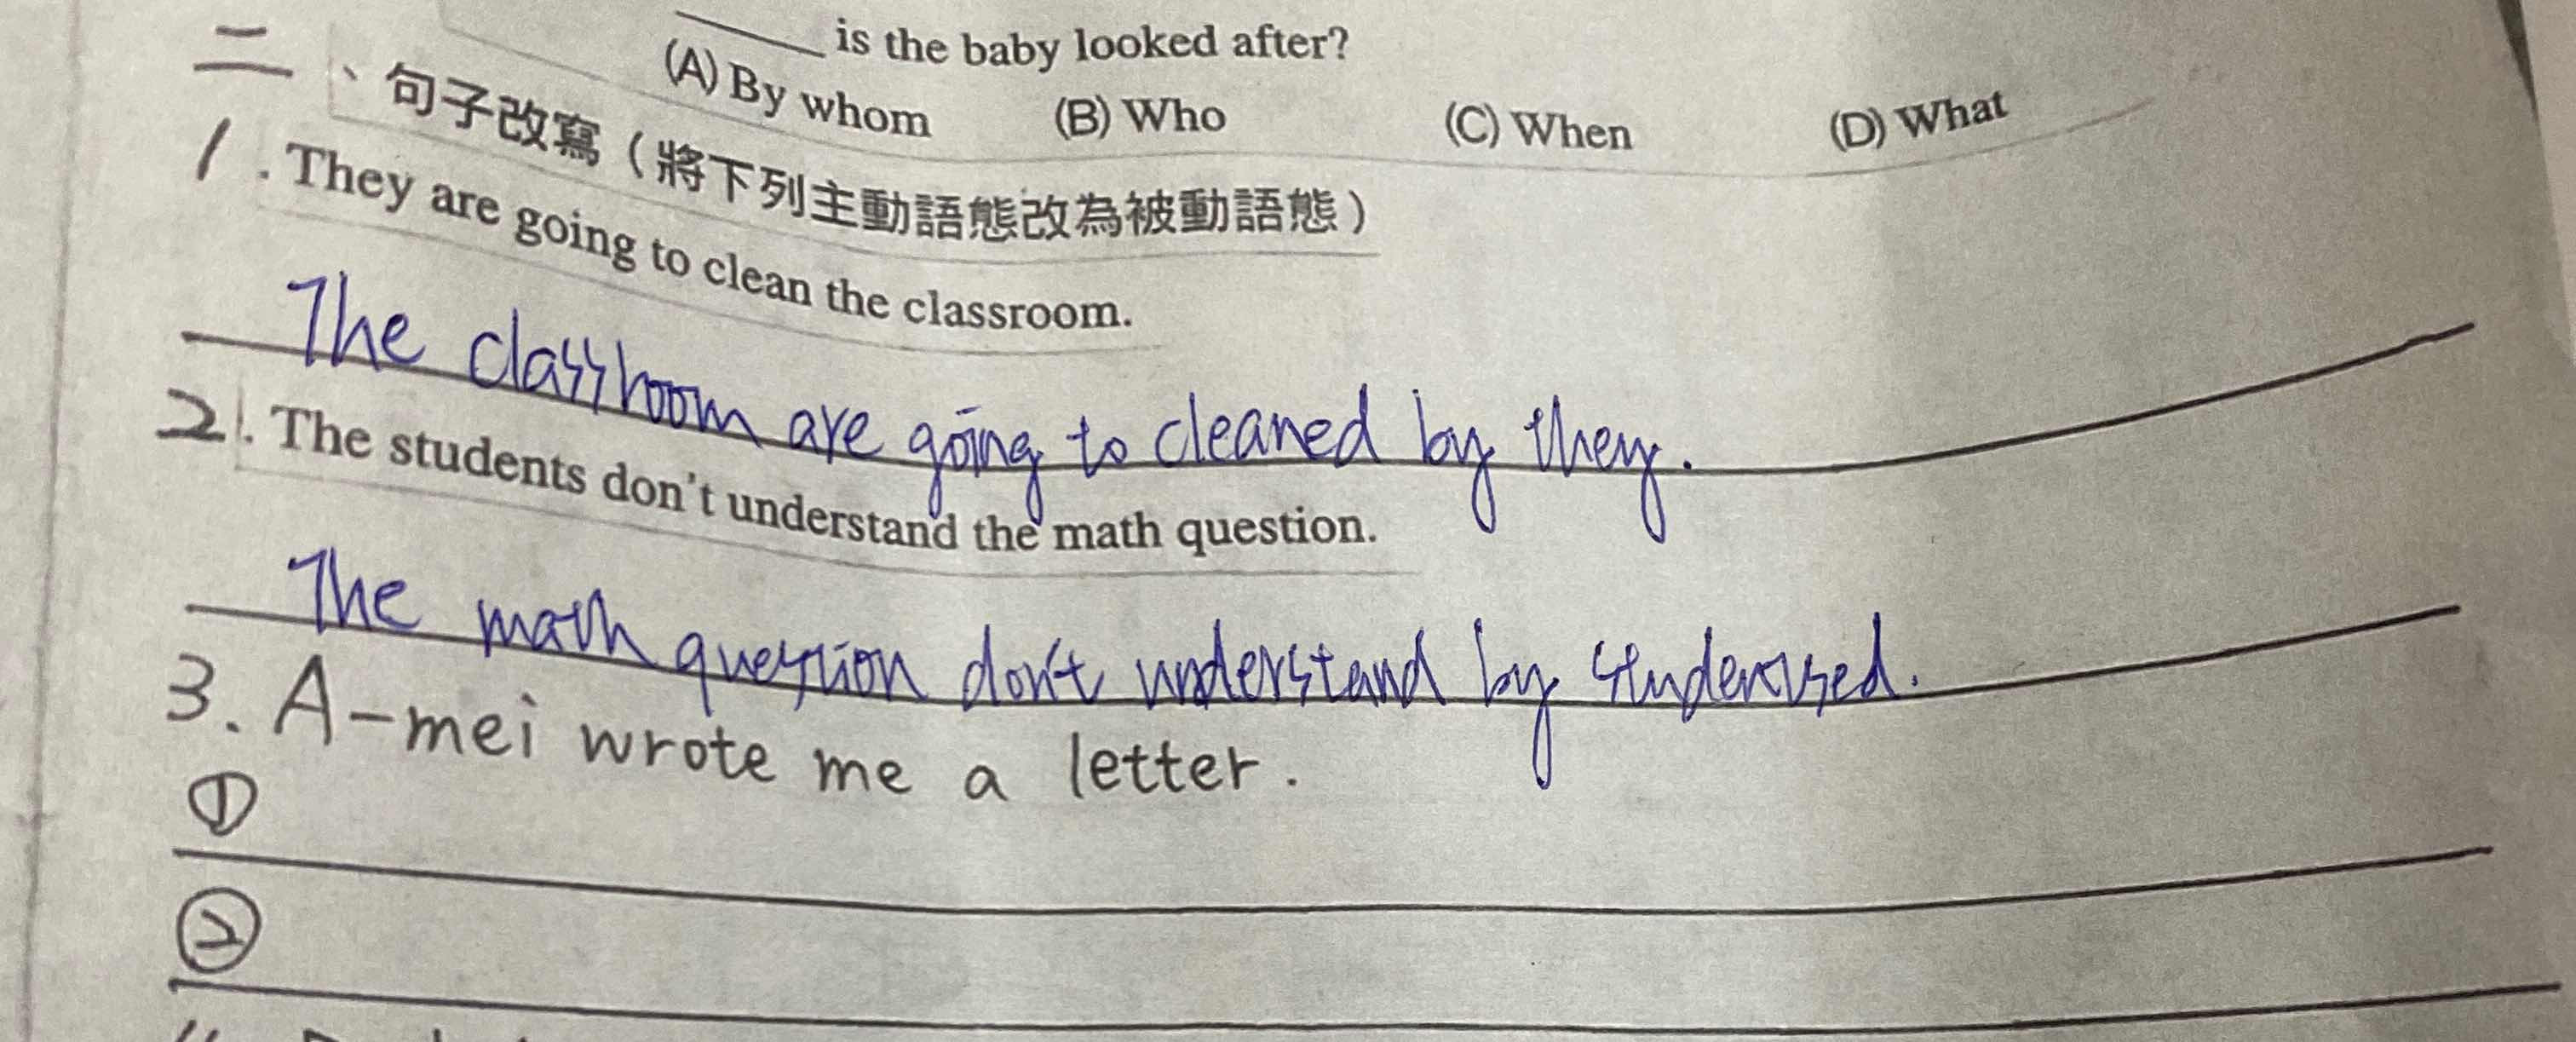 ____ is the baby looked after?
(A) By whom (B) Who (C) When (D) What
二、句子改寫（將下列主動語態改為被動語態）
1. They are going to clean the classroom.
The classroom are going to cleaned by they.
2. The students don't understand the math question.
The math question don't understand by
3. A-mei wrote me a letter.
①
②